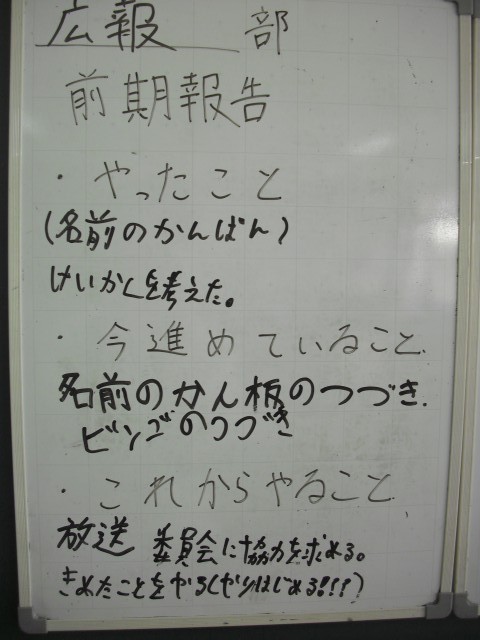 広報 部
前期報告
・やったこと
(名前のかんばん)
けいかくを考えた。
・今進めていること
名前のかん板のつづき.
ビンゴのつづき
・これからやること
放送 委員会に協力を求める。
きめたことをやる(やりはじめる!!!)